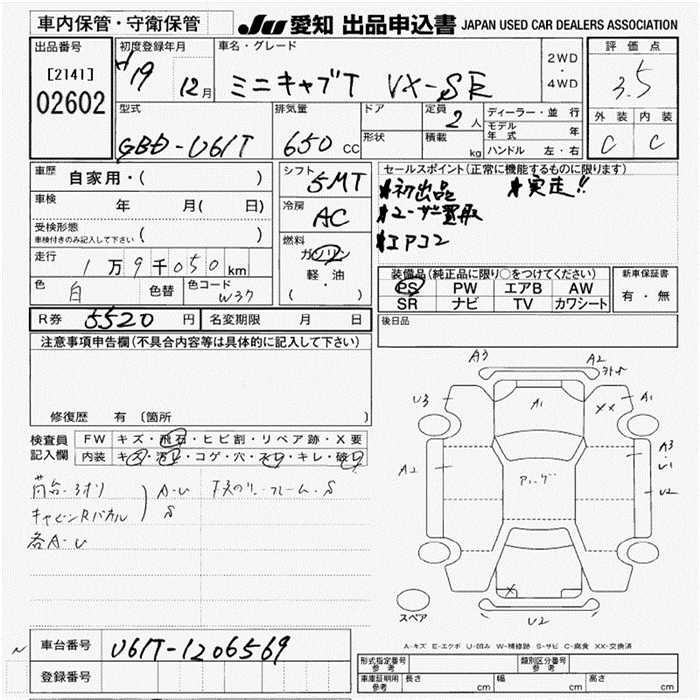 車内保管・守衛保管
JU 愛知 出品申込書 JAPAN USED CAR DEALERS ASSOCIATION
出品番号
[2141]
02602
初度登録年月
H19 12月
車名・グレード
ミニキャブT VX-SE
2WD
・
4WD
評価点
3.5
型式
GBD-U61T
排気量
650 cc
ドア
形状
定員
2人
積載
kg
ディーラー・並行
モデル年式 年
ハンドル 左・右
外装 内装
C C
車歴 自家用・( )
車検 年 月( 日)
受検形態
車検付きのみ記入して下さい ( )
走行
1万9千050km
色
白
色替
色コード
W37
シフト
5MT
冷房
AC
燃料
ガソリン
軽油
( ・ )
セールスポイント(正常に機能するものに限ります)
*初出品 *実走!!
*ユーザー買取
*エアコン
装備品(純正品に限り○をつけてください)
PS PW エアB AW
SR ナビ TV カワシート
新車保証書
有・無
R券 5520円 名変期限 月 日
後日品
注意事項申告欄(不具合内容等は具体的に記入して下さい)
修復歴 有 (箇所 )
検査員
記入欄
FW キズ・飛石・ヒビ割・リペア跡・X要
内装 キズ・汚レ・コゲ・穴・スレ・キレ・破レ
A-U
S
各A-U
A3
A2
U3
A1
A1
XX
A2
A3
U1
U2
X
U2
スペア
A-キズ E-エクボ U-凹み W-補修跡 S-サビ C-腐食 XX-交換済
車台番号 U61T-1206569
登録番号
形式指定番号 参考
類別区分番号 参考
車庫証明用 参考 長さ cm 幅 cm 高さ cm